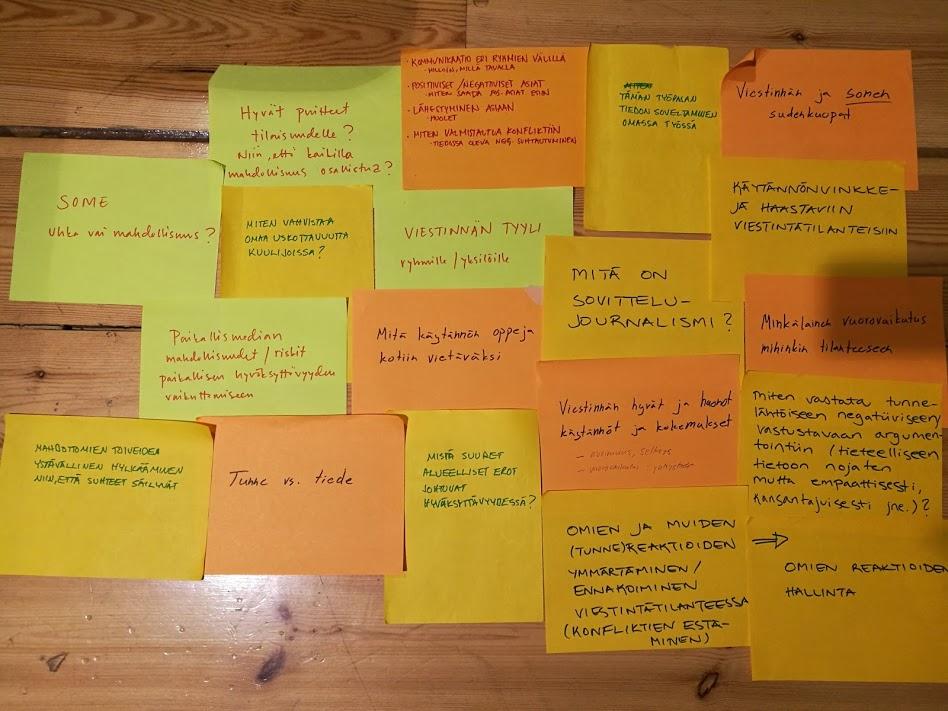 Hyvät puitteet
tilaisuudelle?
Niin, että kaikilla
mahdollisuus osallistua?
· KOMMUNIKAATIO ERI RYHMIEN VÄLILLÄ
- MILLOIN, MILLÄ TAVALLA
· POSITIIVISET / NEGATIIVISET ASIAT
- MITEN SAADA POS. ASIAT ESIIN
· LÄHESTYMINEN ASIAAN
- PUOLET
· MITEN VALMISTAUTUA KONFLIKTIIN
- TIEDOSSA OLEVA NEG. SUHTAUTUMINEN
MITEN
TÄMÄN TYÖPAJAN
TIEDON SOVELTAMINEN
OMASSA TYÖSSÄ
Viestinnän ja somen
sudenkuopat
SOME
uhka vai mahdollisuus?
MITEN VAHVISTAA
OMAA USKOTTAVUUTTA
KUULIJOISSA?
VIESTINNÄN TYYLI
ryhmille / yksilöille
KÄYTÄNNÖNVINKKE-
JÄ HAASTAVIIN
VIESTINTÄTILANTEISIIN
MITÄ ON
SOVITTELU-
JOURNALISMI?
Paikallismedian
mahdollisuudet / riskit
paikallisen hyväksyttävyyden
vaikuttamiseen
Mitä käytännön oppeja
kotiin vietäväksi
Minkälainen vuorovaikutus
mihinkin tilanteeseen
Viestinnän hyvät ja huonot
käytännöt ja kokemukset
- avoimuus, selkeys
Miten vastata tunne-
lähtöiseen negatiiviseen/
vastustavaan argumen-
tointiin (tieteelliseen
tietoon nojaten
mutta empaattisesti,
kansantajuisesti jne.)?
MAHDOTTOMIEN TOIVEIDEN
YSTÄVÄLLINEN HYLKÄÄMINEN
NIIN, ETTÄ SUHTEET SÄILYVÄT
Tunne vs. tiede
MISTÄ SUURET
ALUEELLISET EROT
JOHTUVAT
HYVÄKSYTTÄVYYDESSÄ?
OMIEN JA MUIDEN
(TUNNE)REAKTIOIDEN
YMMÄRTÄMINEN /
ENNAKOIMINEN
VIESTINTÄTILANTEESSA
(KONFLIKTIEN ESTÄ-
MINEN)
⇒ OMIEN REAKTIOIDEN
HALLINTA